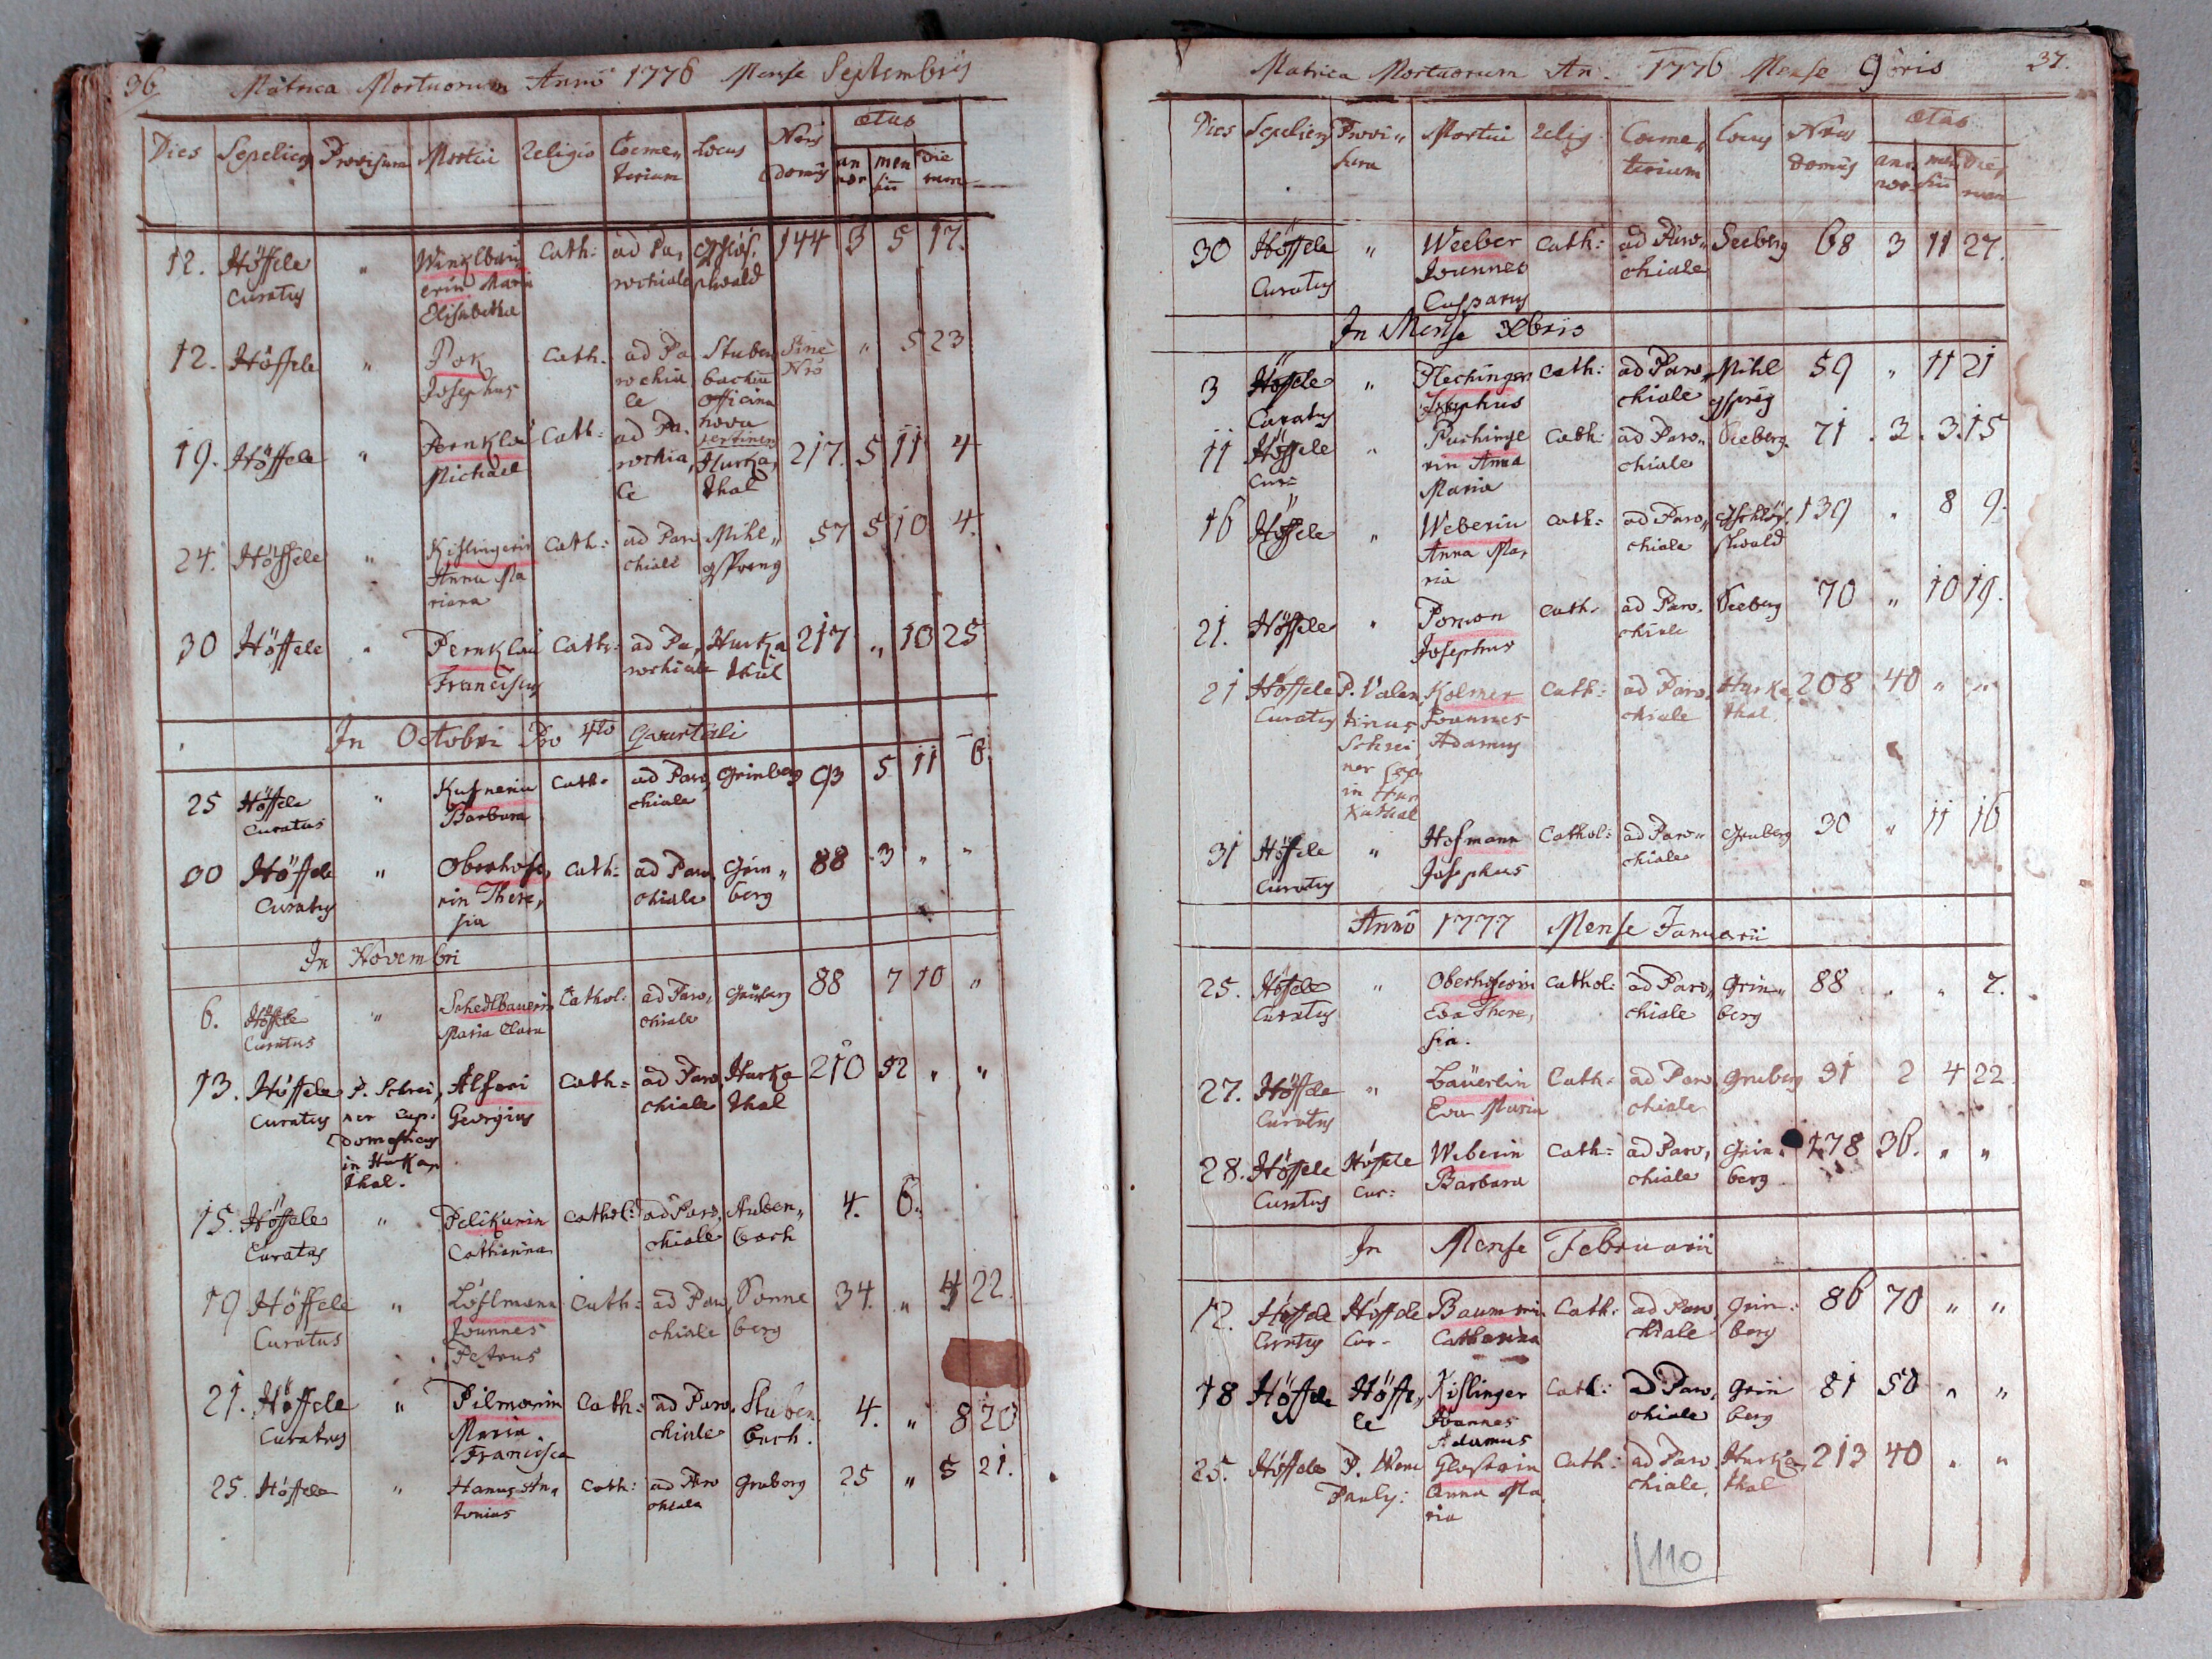 36. Matrica Mortuorum Anno 1776 Mense Septembris
Dies Sepeliens Provisum Mortui Religio Coeme„ terium Locus Nris Domus ætas an nor men siu die rum
12. Höffele Curatus „ Winklbau erin Maria Elisabetha Cath: ad Pa, rochiale Gschlös, slwald 144 3 5 17.
12. Höffele „ Pok Josephus Cath. ad Pa rochia le Stuben bachiu officina nova Sine Nro „ 5 23
19. Höffele „ Pernklau Michael Cath: ad Pa. rochia, le pertinen Hurka, thal 217. 5 11 4
24. Höffele „ Kislingerin Anna Ma riana Cath: ad Paro chiale Mihl„ gspreng 57 5 10 4.
30 Höffele „ Pernklau Franciscus Cath: ad Pa, rochiale Hurka thal 217 „ 10 25
In Octobri Pro 4to Quartali
25 Höffele Curatus „ Kufnerin Barbara Cath. ad Paro, chiale Grinberg 93 5 11 6.
30 Höffele Curatus „ Oberhofe, rin There, sia Cath: ad Paro, chiale Grin„ berg 88 3 „ „
In Novembri
6. Höffele Curatus „ Schedlbauerin Maria Clara Cathol: ad Paro, chiale Grinberg 88 7 10 „
13. Höffele Curatus P. Schrei, ner Cap: Domesticus in Hurka, thal. Alfori Georgius Cath: ad Paro chiale Hurka thal 210 52 „ „
15. Höffele Curatus „ Pelikanin Catharina Cathol: ad Paro, chiale Stuben„ bach 4. 6.
19 Höffele Curatus „ Löflmann Joannes Petrus Cath: ad Paro, chiale Sonne berg 34. „ 4 22.
21. Höffele Curatus „ Pilmanin Maria Francisca Cath: ad Paro. chiale Stuben bach. 4. „ 8 20
25. Höffele „ Hanus An, tonius Cath: ad Paro chiale Gruberg 25 „ 5 21.
Matrica Mortuorum An. 1776 Mense 9bris 37.
Dies Sepeliens Provi„ sura Mortui Relig. Coeme„ terium Locus Nrus Domus ætas an nor men siu die rum
30 Höffele Curatus „ Weeber Joannes Casparus Cath: ad Paro„ chiale Seeberg 68 3 11 27.
In Mense Xbris
3 Höffele Curatus „ Flechinger Josephus Cath: ad Paro„ chiale Mihl gspreg 59 „ 11 21
11 Höffele Cur: „ Puchinge rin Anna Maria Cath: ad Paro„ chiale Seeberg 71 . 3. 3. 15
16 Höffele „ Weberin Anna Ma, ria Cath: ad Paro„ chiale Gschlös, slwald 139 „ 8 9.
21. Höffele „ Josephus Cath. ad Paro. chiale Seeberg 70 „ 10 19.
21 Höffele Curatus P. Valen, tinus Schrei ner Cap. in Hur kathal Kolmer Joannes Adamus Cath: ad Paro, chiale Hurka, thal. 208 40 „ „
31 Höffele Curatus „ Hofmann Josephus Cathol: ad Paro„ chiale Gruberg 30 „ 11 16
Anno 1777 Mense Januarii
25. Höffele Curatus „ Oberhoferin Eva There, sia. Cathol: ad Paro„ chiale Grin„ berg 88 „ „ 2.
27. Höffele Curatus „ Bäuerlin Eva Maria Cath. ad Paro chiale Gruberg 31 2 4 22.
28. Höffele Curatus Höffele Cur: Weberin Barbara Cath: ad Paro, chiale Grin, berg 178 36. „ „
In Mense Februarii
12. Höffele Curatus Höffele Cur. Baumin Catharina Cath: ad Paro, chiale Grin: berg 86 70 „ „
18 Höffele Höffe, le Kislinger Joannes Adamus Cath: ad Paro, chiale Grin berg 81 50 „ „
25. Höffele P. Wenc Pauly: Glaserin Anna Ma, ria Cath: ad Paro chiale. Hurka, thal 213 40 „ „
110